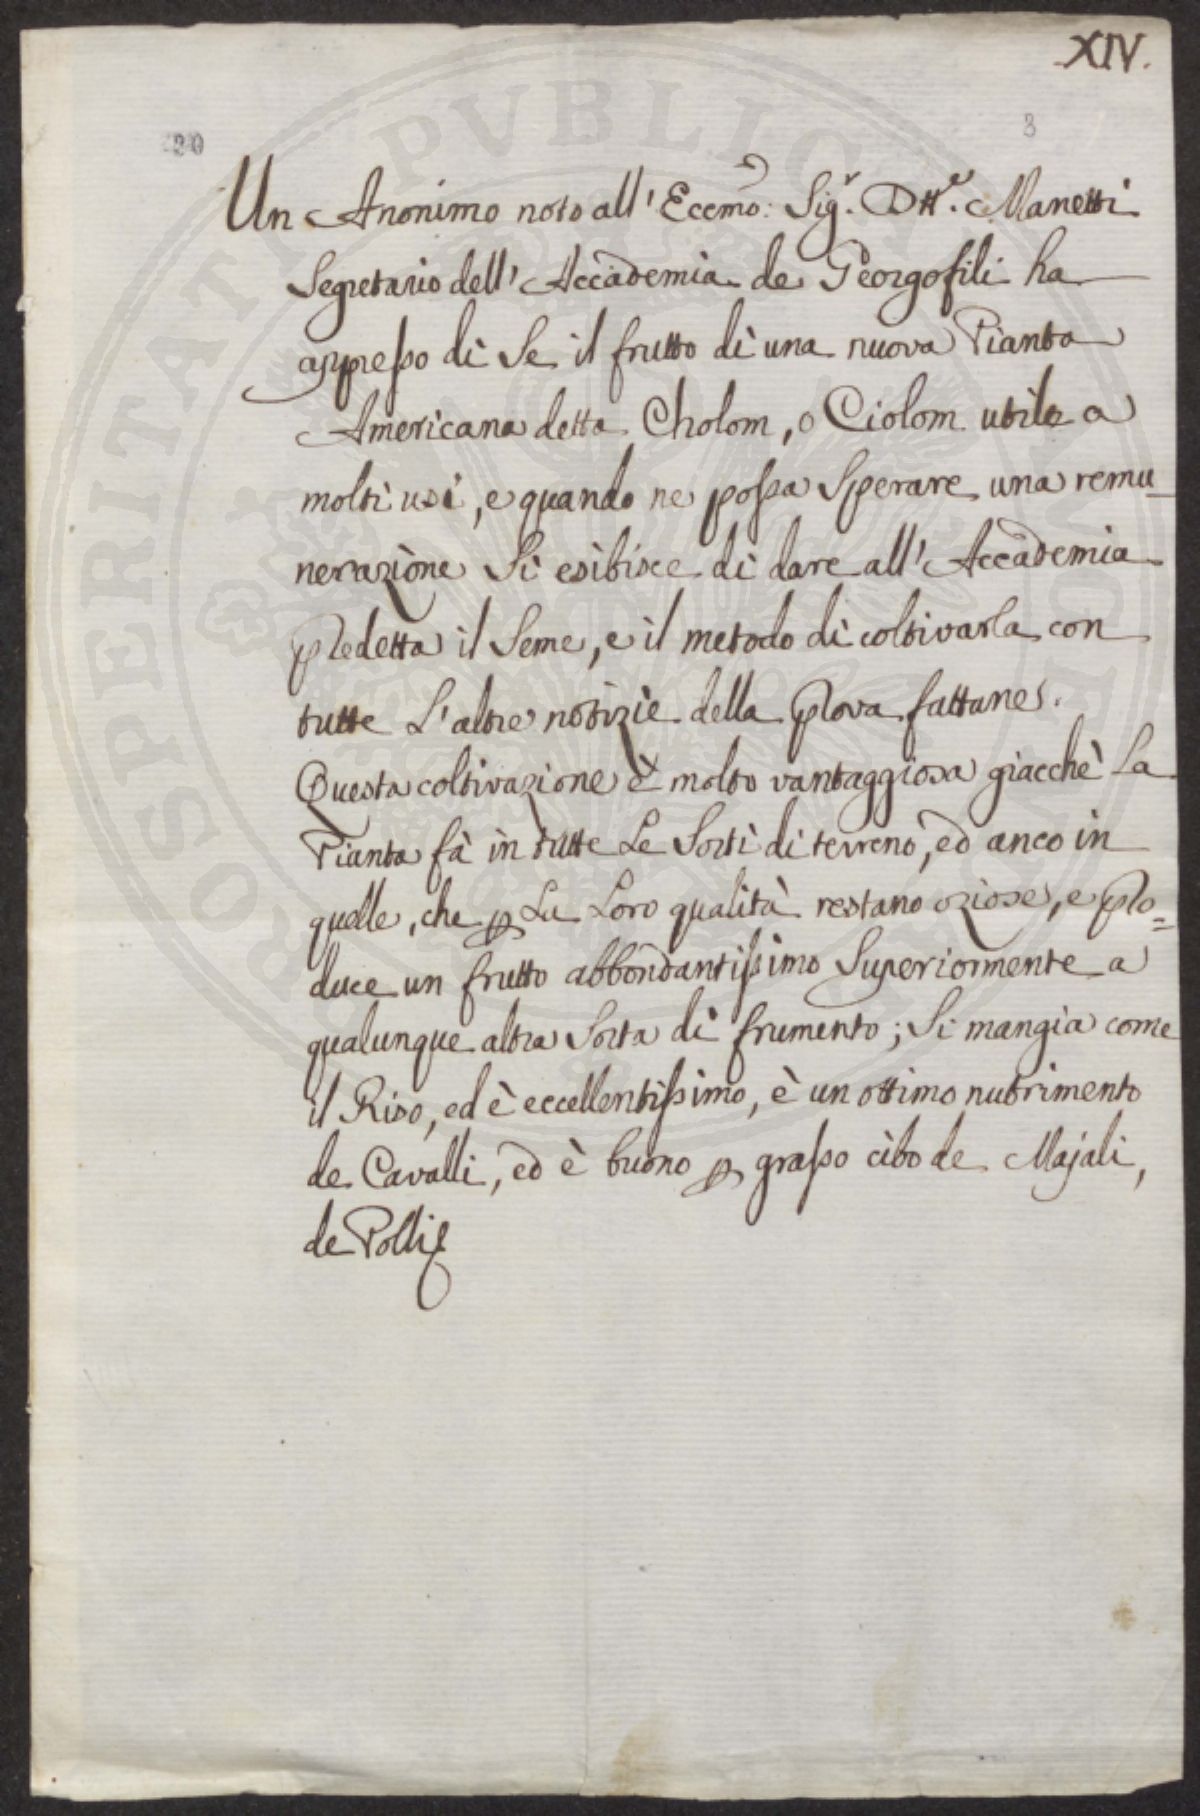 XIV.
20
3
Un Anonimo noto all' Eccmo: Sigr. Dtte. Manetti
Segretario dell' Accademia de Georgofili ha
appresso di Se il frutto di una nuova Pianta
Americana detta Cholom, o Ciolom utile a
molti usi, e quando ne possa Sperare una remu_
nerazione Si esibisce di dare all' Accademia
predetta il Seme, e il metodo di coltivarla con
tutte L'altre notizie della prova fattane.
Questa coltivazione è molto vantaggiosa giacchè La
Pianta fà in tutte Le Sorti di terreno, ed anco in
quelle, che p La Loro qualità restano oziose, e pro=
duce un frutto abbondantissimo Superiormente a
qualunque altra Sorta di frumento; Si mangia come
il Riso, ed è eccellentissimo, è un ottimo nutrimento
de Cavalli, ed è buono p grasso cibo de Majali,
de Polli
PROSPERITATI PVBLICAE AVGENDAE